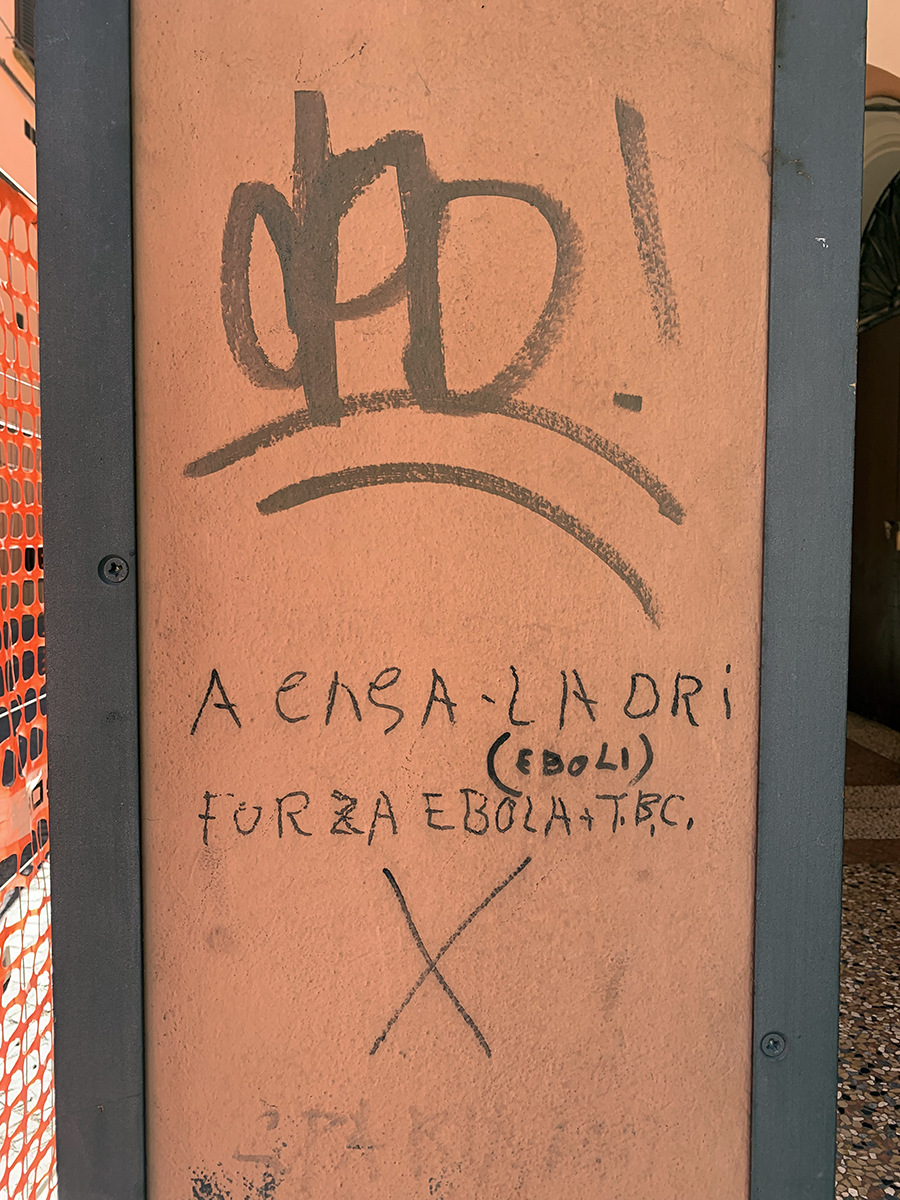 A CASA-LADRi
(EBOLI)
FORZA EBOLA+T.B.C.
X